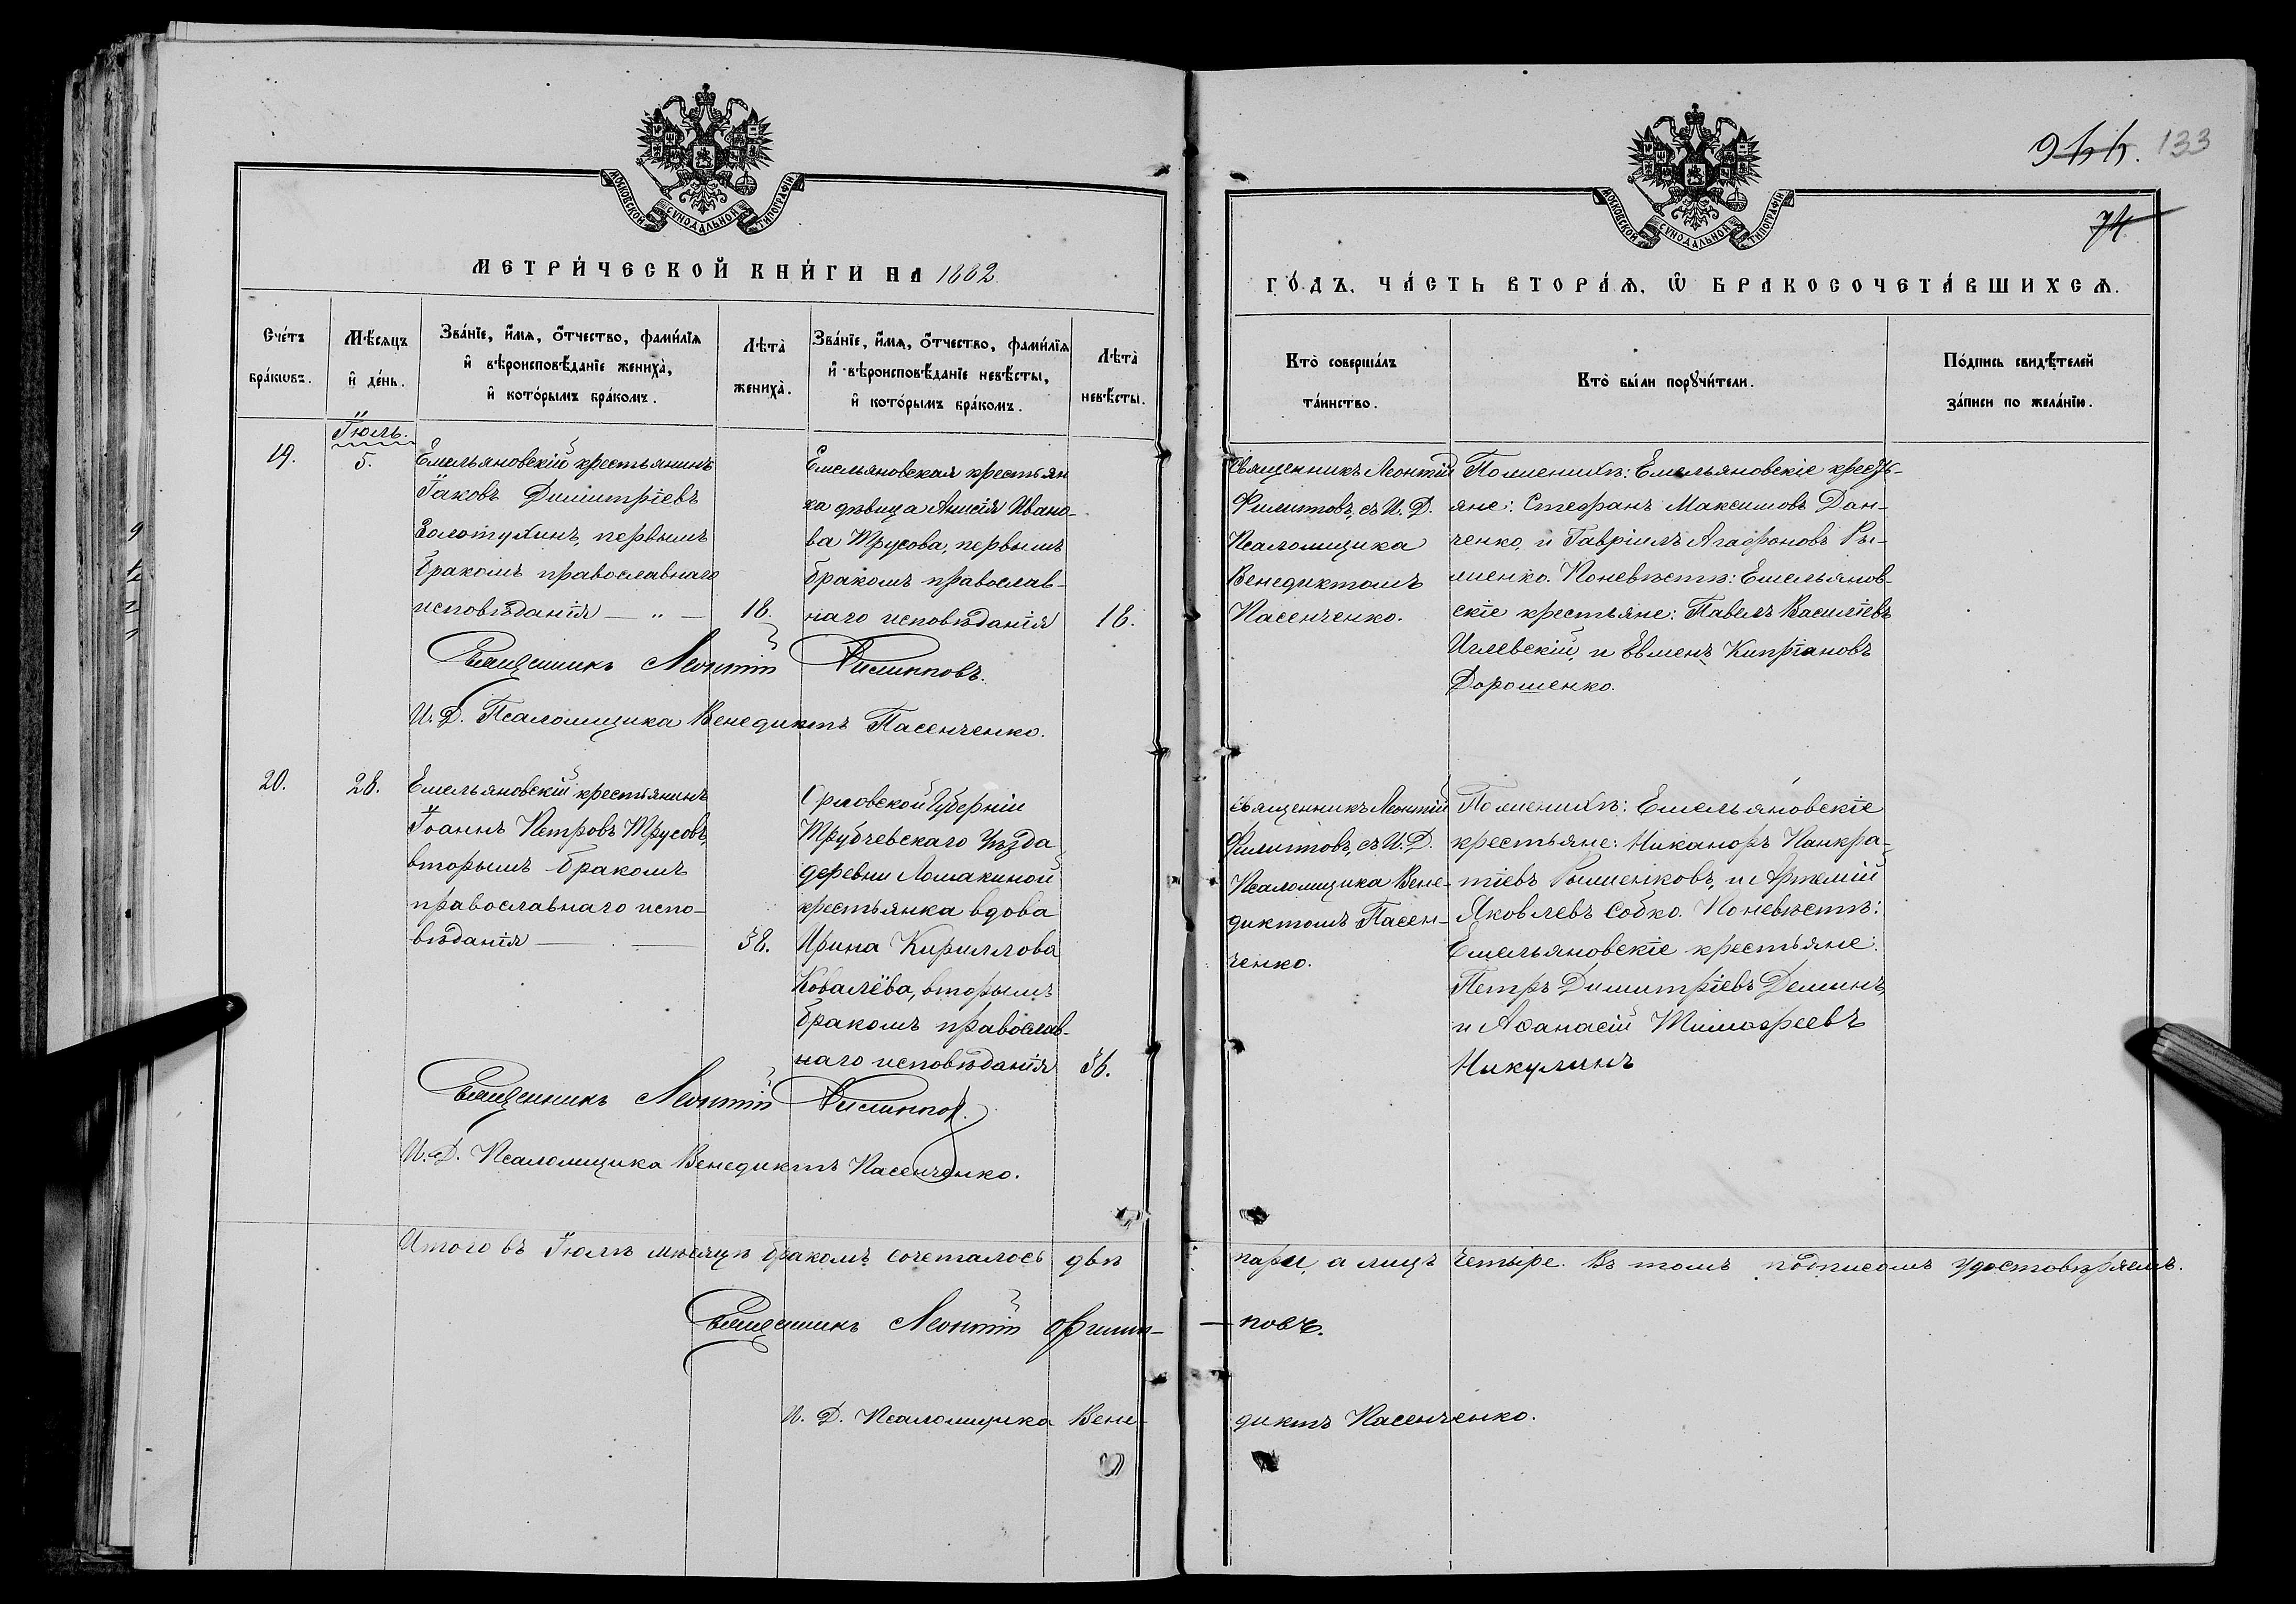 МОСКОВСКОЙ СѴНОДАЛЬНОЙ ТИПОГРАФІИ
МЕТРИ́ЧЕСКОЙ КНИ́ГИ НА 1882
Сче́тъ бра́кѡвъ.
Мѣ́сяцъ и де́нь.
Зва́нїе, и́мѧ, ѻ́тчество, фами́лїѧ
и вѣроисповѣ́данїе жениха̀,
и кото́рымъ бра́комъ.
Лѣта̀ жениха̀.
Зва́нїе, и́мѧ, ѻ́тчество, фами́лїѧ
и вѣроисповѣ́данїе невѣ́сты,
и кото́рымъ бра́комъ.
Лѣта̀ невѣ́сты.
Іюль.
19.
5.
Емельяновскій крестьянинъ
Іаковъ Димитріевъ
Золотухинъ, первымъ
бракомъ православнаго
исповѣданія — „ —
18.
Емельяновская крестьян
ка дѣвица Анисія Ивано-
ва Трусова, первымъ
бракомъ православ-
наго исповѣданія
18.
Священникъ Леонтій Филипповъ.
И. Д. Псаломщика Венедиктъ Пасенченко.
20.
28.
Емельяновскій крестьянинъ
Іоаннъ Петровъ Трусовъ,
вторымъ бракомъ
православнаго испо-
вѣданія —
38.
Орловской Губерніи
Трубчевскаго Уѣзда
деревни Ломакиной
крестьянка вдова
Ирина Кириллова
Ковалёва, вторымъ
бракомъ православ-
наго исповѣданія
36.
Священникъ Леонтій Филиппов.
И. Д. Псаломщика Венедиктъ Пасенченко.
Итого въ Іюлѣ мѣсяцѣ бракомъ сочеталось двѣ
Священникъ Леонтій Филип-
И. Д. Псаломщика Вене-
133
74
МОСКОВСКОЙ СѴНОДАЛЬНОЙ ТИПОГРАФІИ
ГО́ДЪ, ЧА́СТЬ ВТОРА́Ѧ, Ѡ БРАКОСОЧЕТА́ВШИХСѦ.
Кто̀ соверша́лъ
та́инство.
Кто̀ бы́ли порꙋчи́тели.
По́дпись свидѣ́телей
за́писи по жела́нїю.
Священникъ Леонтій
Филипповъ, съ И. Д.
Псаломщика
Венедиктомъ
Пасенченко.
По женихѣ: Емельяновскіе кресть-
яне: Стефанъ Максимовъ Дан-
ченко, и Гавріилъ Агафоновъ Ры-
женко. По невѣстѣ: Емельянов-
скіе крестьяне: Павелъ Василіевъ
и Евменъ Кипріановъ
Дорошенко.
Священникъ Леонтій
Филипповъ, съ И. Д.
Псаломщика Вене-
диктомъ Пасен-
ченко.
По женихѣ: Емельяновскіе
крестьяне: Никаноръ Панкра-
тіевъ и Артемій
Яковлевъ Собко. По невѣстѣ:
Емельяновскіе крестьяне:
Петръ Димитріевъ Деминъ,
и Аѳанасій Тимофеевъ
Никулинъ
пары, а лицъ четыре. Въ томъ подписомъ удостовѣряемъ.
—повъ.
диктъ Пасенченко.